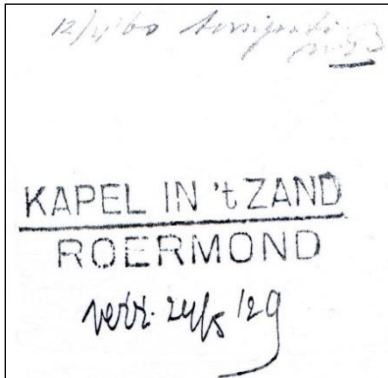 12/4/60
KAPEL IN 't ZAND
ROERMOND
verz. 24/5 '29